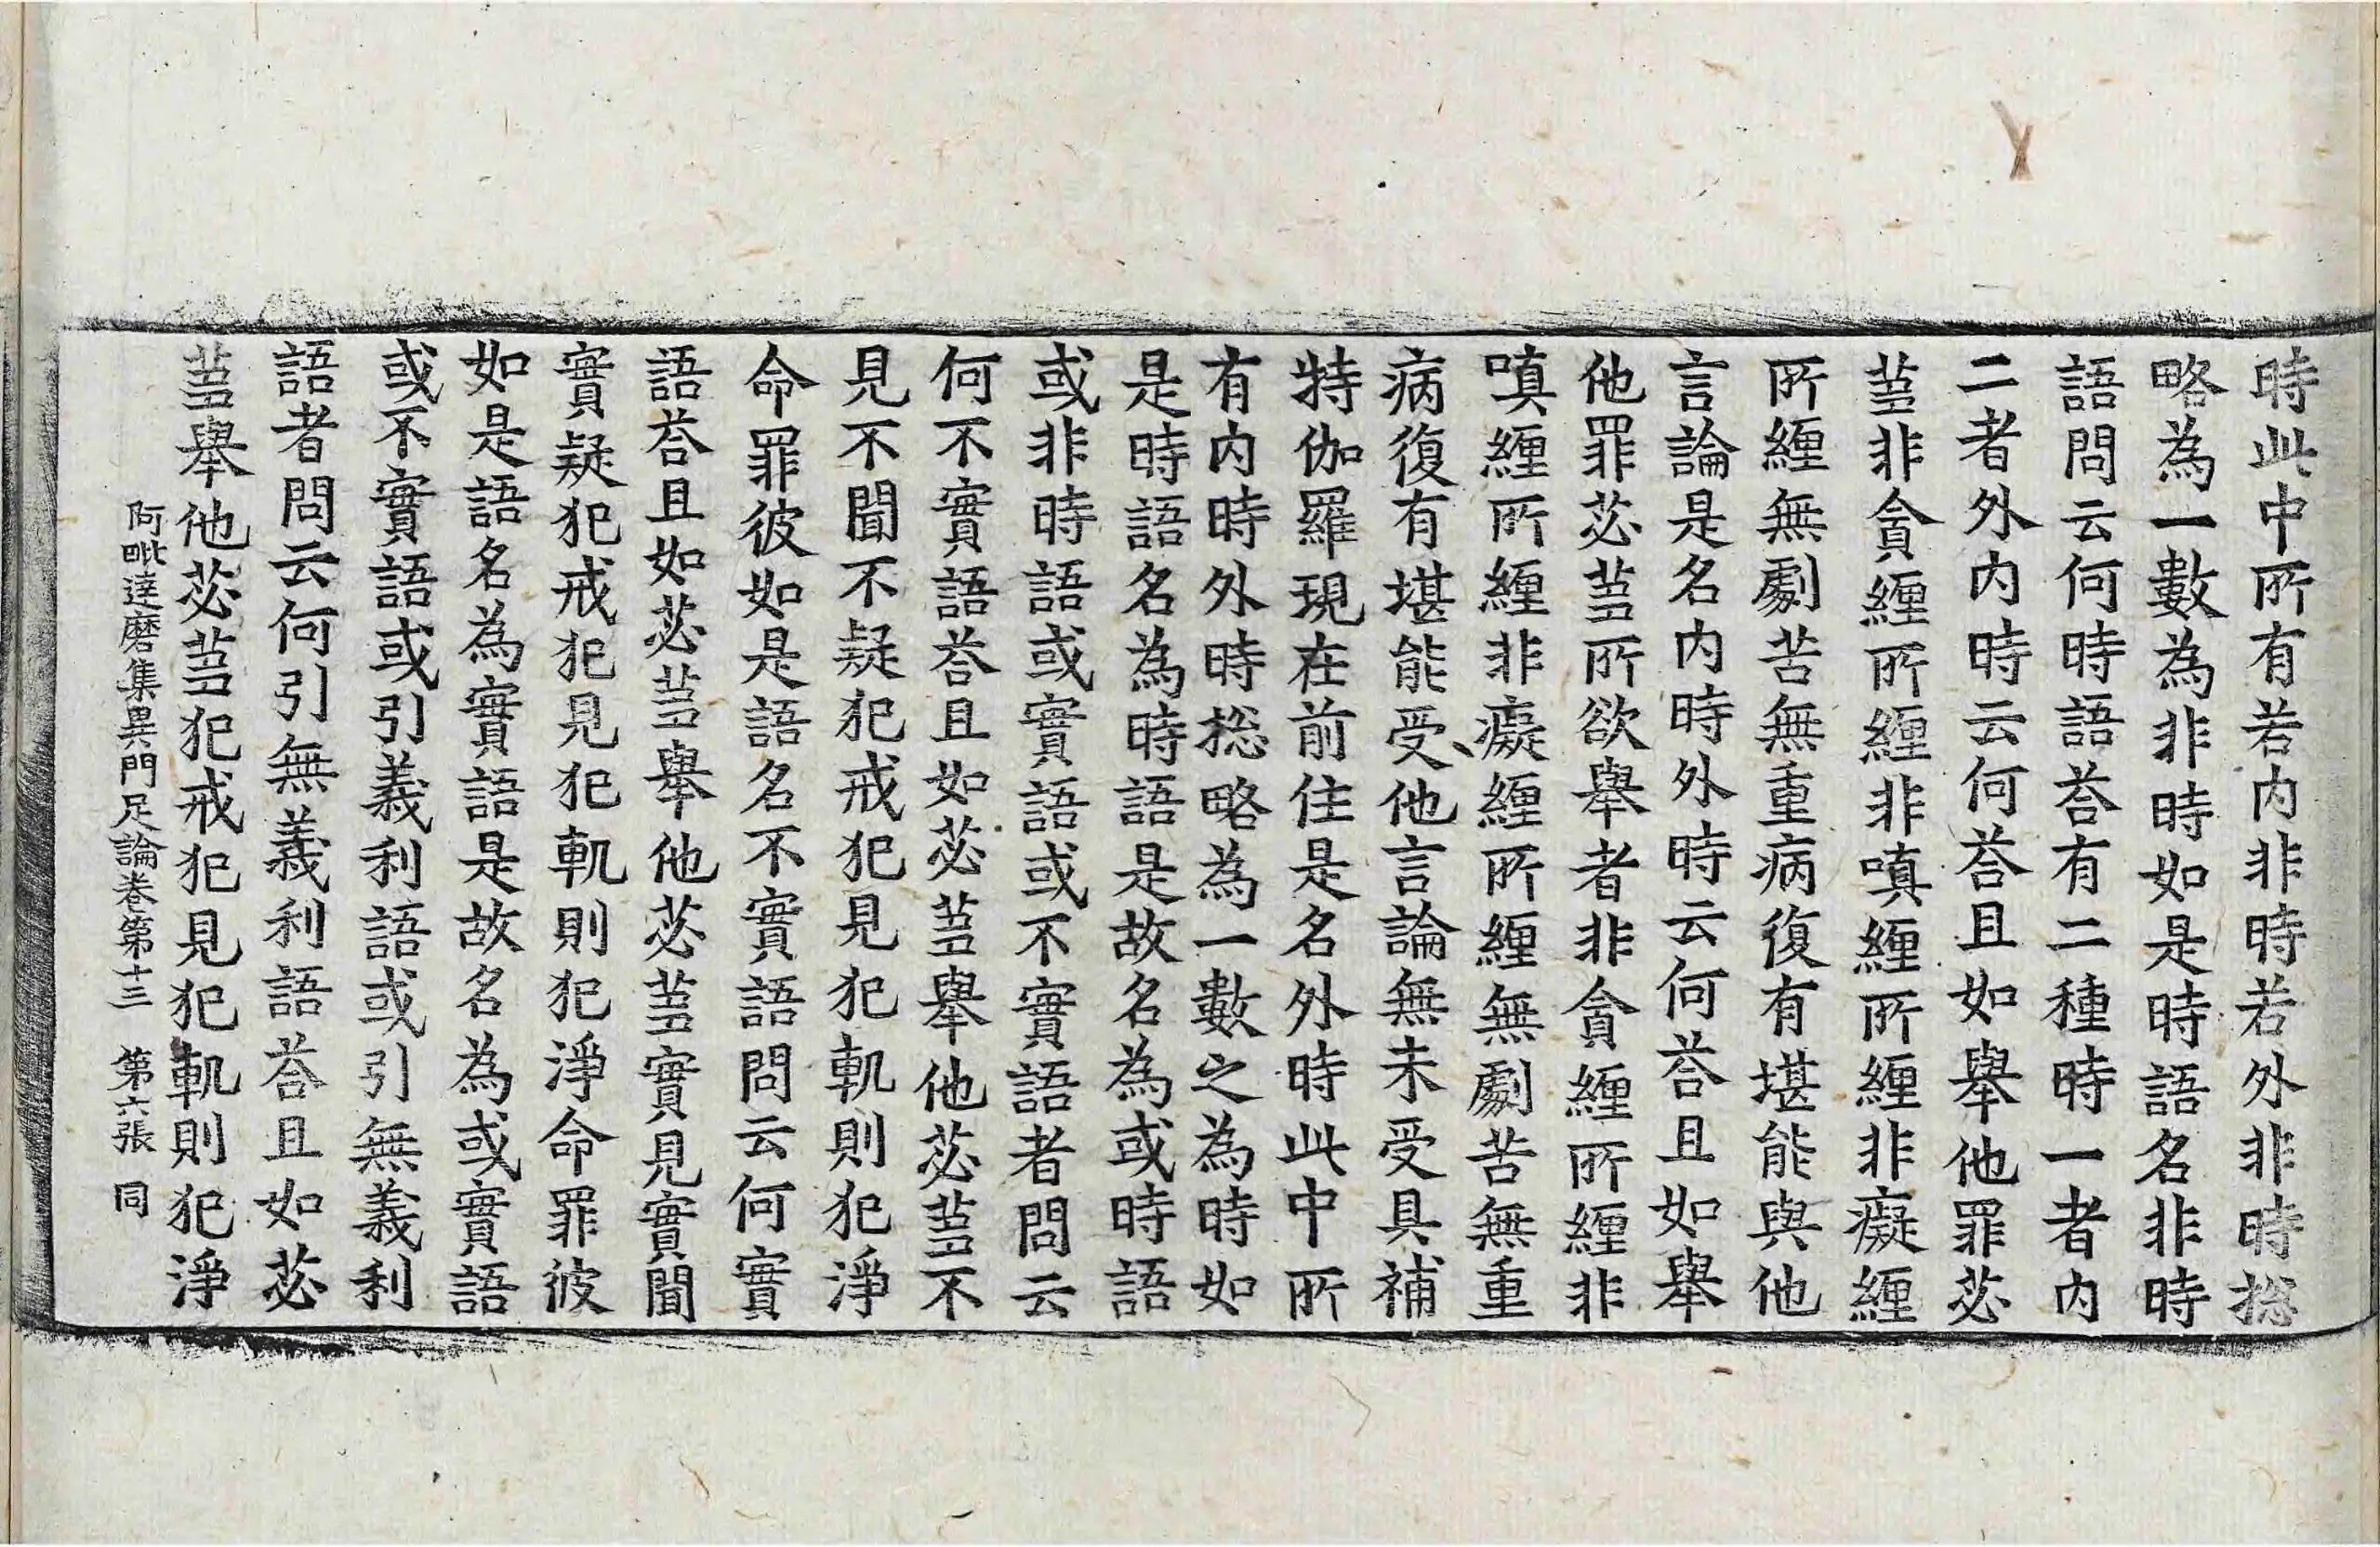 時此中所有若内非時若外非時捴
略為一數為非時如是時語名非時
語問云何時語荅有二種時一者内
二者外内時云何荅且如舉他罪苾
蒭非貪纏所纏非嗔纏所纏非癡纏
所纏無劇苦無重病復有堪能與他
言論是名内時外時云何荅且如舉
他罪苾蒭所欲舉者非貪纏所纏非
嗔纏所纏非癡纏所纏無劇苦無重
病復有堪能受他言論無未受具補
特伽羅現在前住是名外時此中所
有内時外時捴略為一數之為時如
是時語名為時語是故名為或時語
或非時語或實語或不實語者問云
何不實語荅且如苾蒭舉他苾蒭不
見不聞不疑犯戒犯見犯軌則犯淨
命罪彼如是語名不實語問云何實
語荅且如苾蒭舉他苾蒭實見實聞
實疑犯戒犯見犯軌則犯淨命罪彼
如是語名為實語是故名為或實語
或不實語或引義利語或引無義利
語者問云何引無義利語荅且如苾
蒭舉他苾蒭犯戒犯見犯軌則犯淨
阿毗達磨集異門足論卷第十三 第六張 同